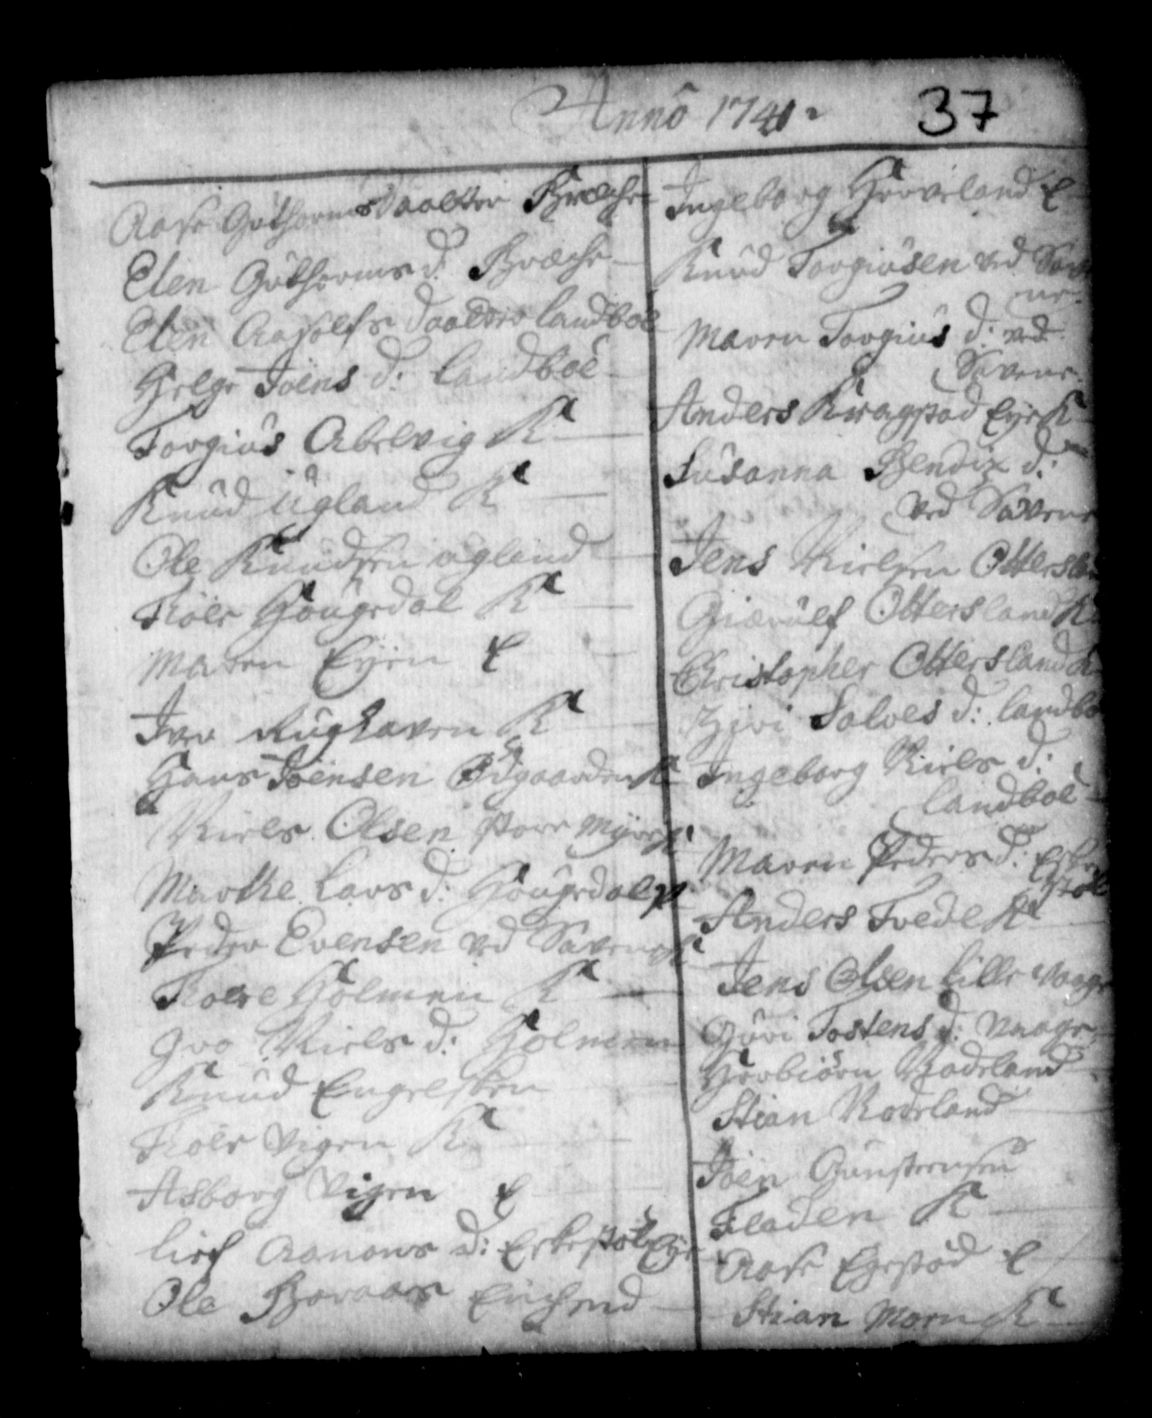 Annô 1741
37
Aase Guthorms daatter Bræche
Elen Guthorms d. Bræche
Elen Aasolfs daatter landboe
Helge Joens d: landboe
Torgiûs Abelvig K
Knûd Ugland K
Ole Knûdsen ugland
Tolv Hougedal K
Maren Eyen E
Iver Rughaven K
Hans Joensen Ødgaarden K
Niels Olsen store Myre K
Marthe Lars d: Hougedal
Peder Evensen ved Savene K
Tolve Holmen K
Gro Niels d: Holmen
Knud Engelsken
Tolv Vigen K
Asborg Vigen E
lisf Aanons d: Eskestøl
Ole Boraas
Ingeborg Herreland E
Knud Torgiûsen ved Save
ne
Maren Torgiûs d: ved
Savene
Anders Kragstad K
Susanna Bendix d:
ved Savene
Jens Nielsen Ottersla
Giærulf Ottersland K
Christopher Ottersland K
Siri Salves d: landbo
Ingeborg Niels d:
landboe
Maren Peders d: Eske
støl
Anders Tvede K
Jens Olsen lille Vaage
Gûri Tostens d: Vaage
Herbiørn Rodeland
Stian Roveland
Joen Gunstensen
Fladen K
Aase Egestad E
Stian Moen K